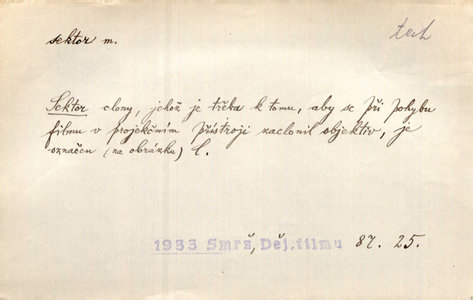 sektor m.
tech
Sektor clony, jehož je třeba k tomu, aby se při pohybu
filmu v projekčním přístroji zaclonil objektiv, je
označen (na obrázku) l.
1933 Smrž, Děj. filmu 87. 25.